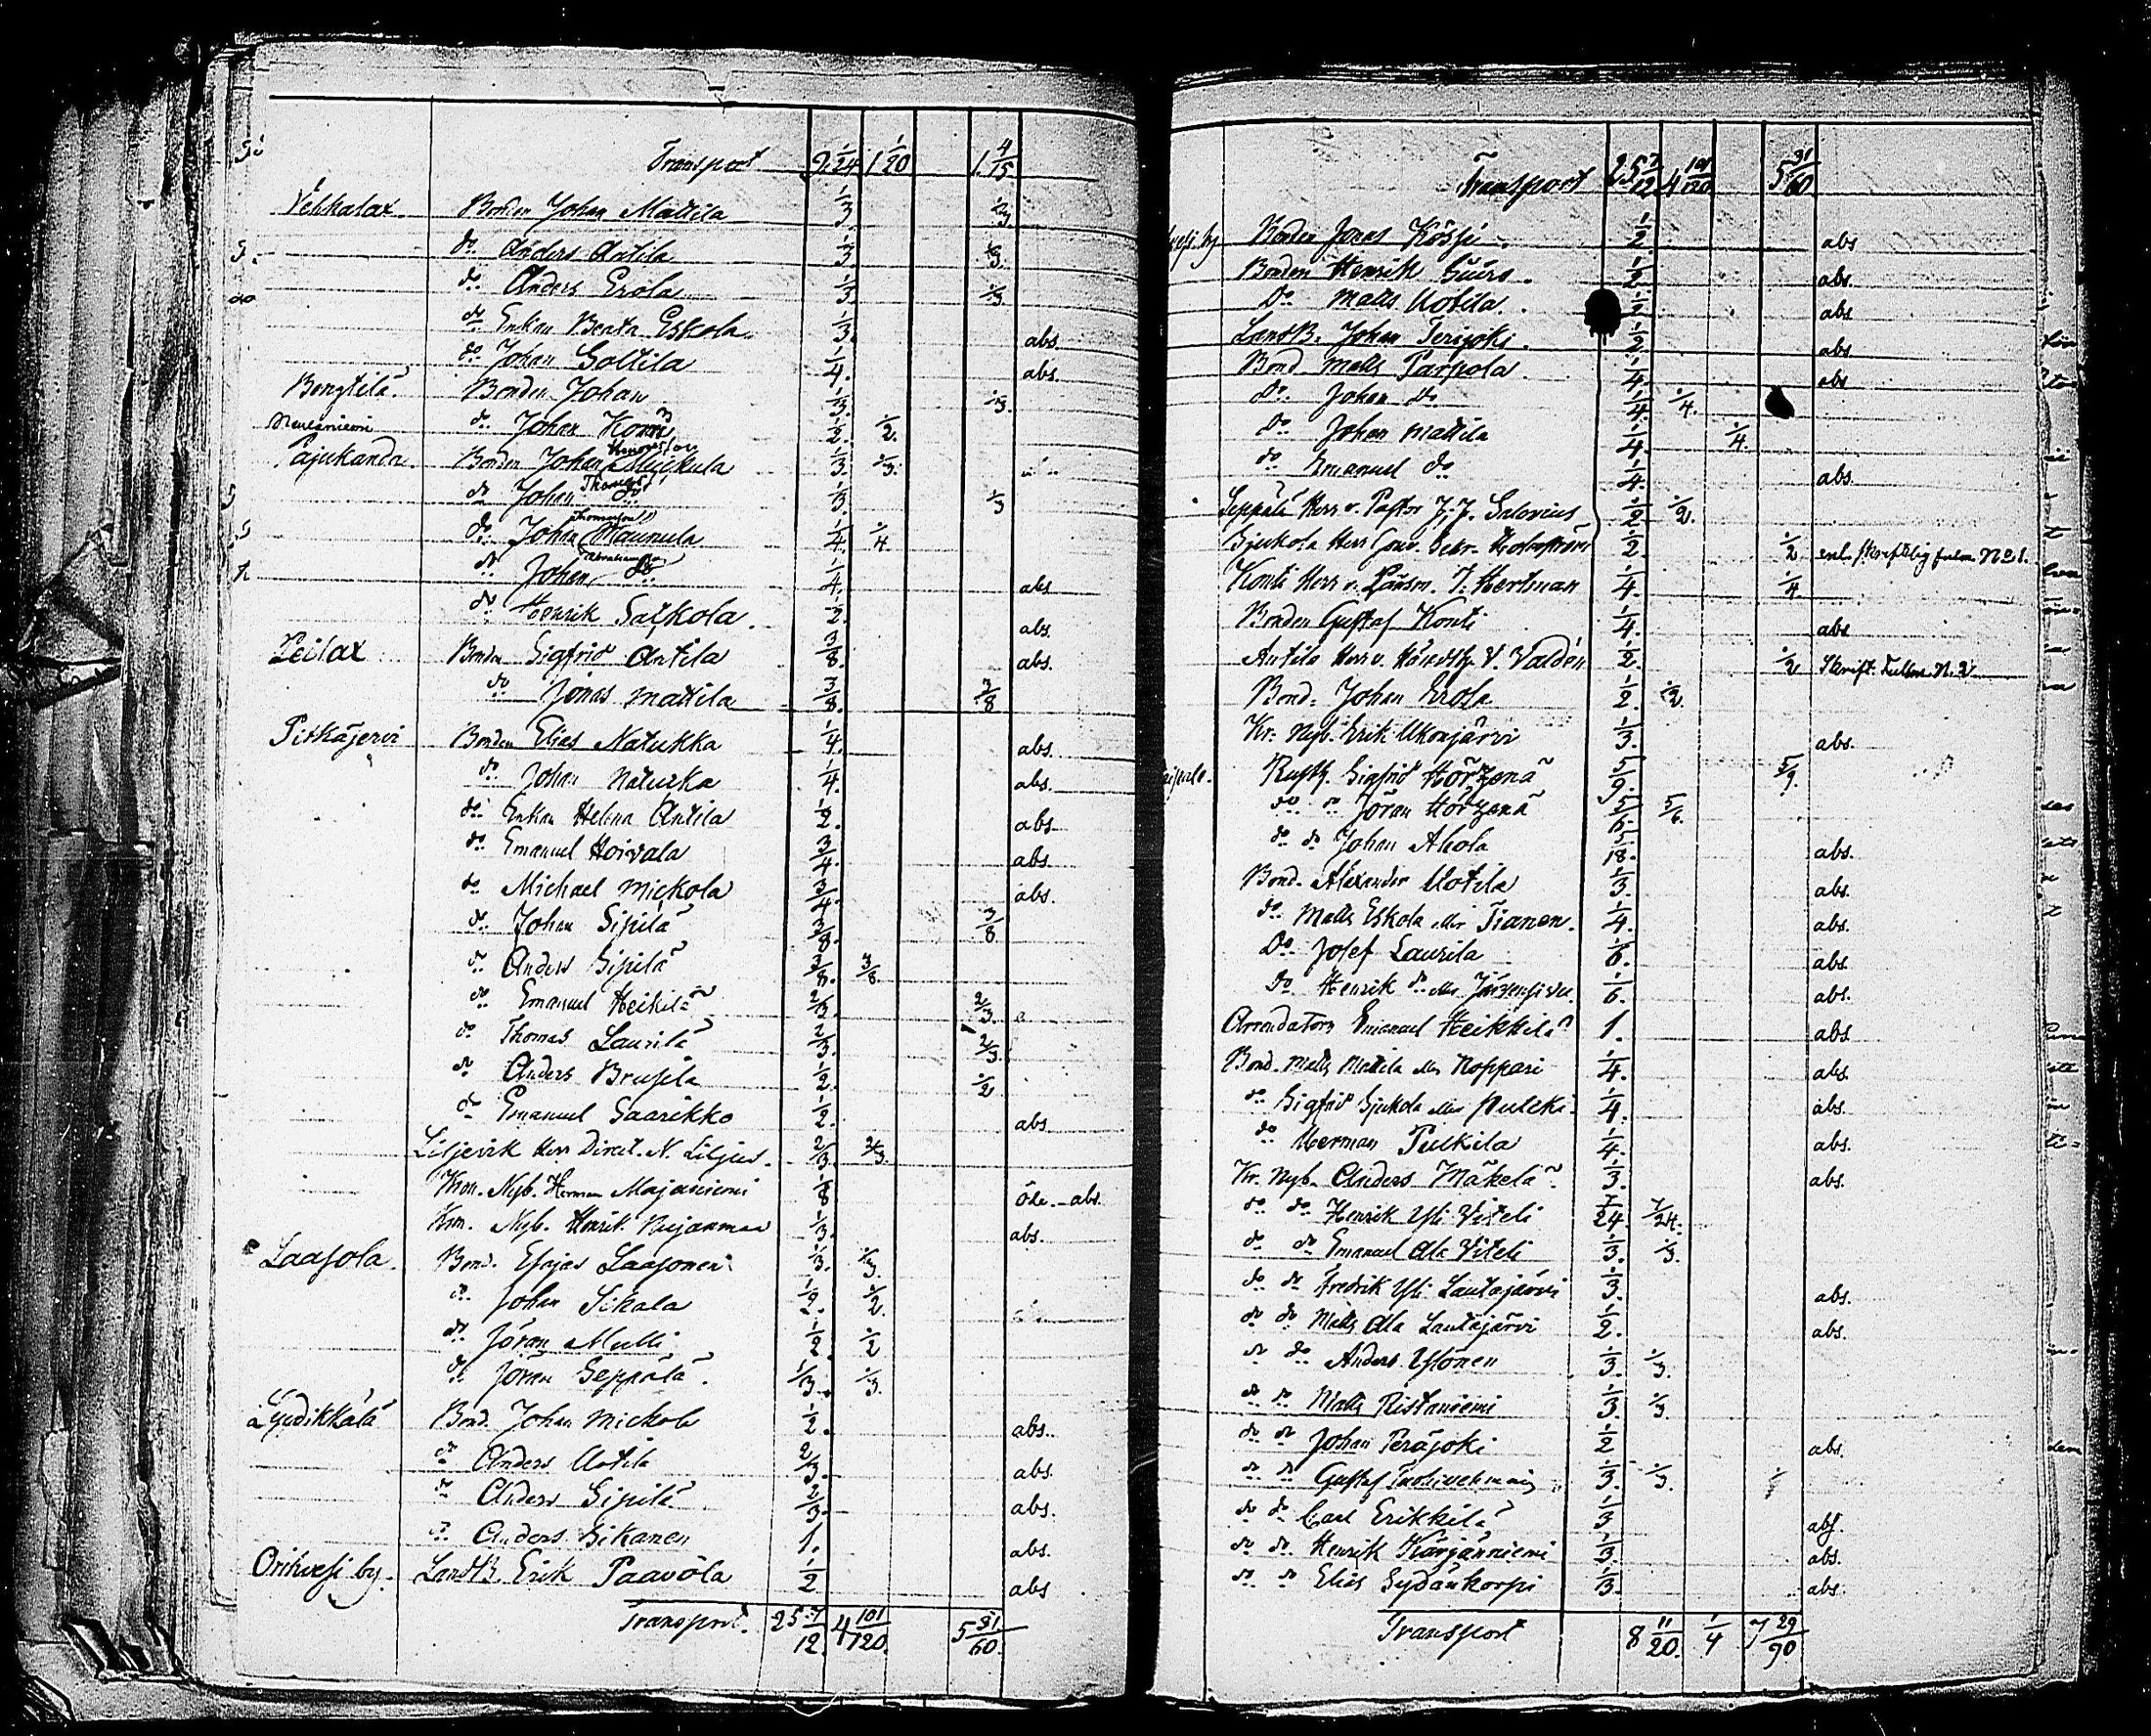 Transport 9 1/24 1 1/20 1 4/15
Vehkalax Bonden Johan Mattila 1/3 1/3
do Anders Antila 1/3 1/3
do Anders Erola 1/3 1/3
do Enkan Beata Eskola 1/3 abs.
do Johan Soltila 1/4 abs.
Bengtilä Bonden Johan 1/3 1/3
do Johan 1/2 1/2
Pajukanda Bonden Johan 1/3 1/3
do Johan Thomass. do 1/3 1/3
do Johan Thomasson Maunula 1/4 1/4
do Johan Abrahamson do 1/4 abs
do Henrik Saikola 1/2 abs.
Leilax Bonden Sigfrid Antila 3/8 abs.
do Jonas Mattila 3/8 3/8
Pitkäjervi Bonden Elias Natukka 1/4 abs.
do Johan Natukka 1/4 abs.
do Enkan Helena Antila 1/2 abs.
do Emanuel Hoivala 3/4 abs.
do Michael Mickola 3/4 abs.
do Johan Sipilä 3/8 3/8
do Anders Sipilä 3/8 3/8
do Emanuel Heikilä 2/3 2/3
do Thomas Laurila 2/3 2/3
do Anders Brusila 1/2 1/2
do Emanuel Saarikko 1/2 abs
Liljevik Herr Direct. N. Liljus 2/3 2/3
Kron. Nyb. Herman Majaniemi 1/8 öde abs.
Kron. Nyb. Henrik 1/3 abs.
Laasola Bond. Esajas Laasonen 1/3 1/3
do Johan Sikala 1/2 1/2
do Jöran Mulli 1/2 1/2
do Jöran Seppälä 1/3 1/3
Lyydikkälä Bond. Johan Mickola 1/2 abs.
do Anders Uotila 2/3 abs.
do Anders Sipilä 2/3 abs.
do Anders Sikanen 1. abs.
Orihvesi by. LandtB. Erik Paavola 1/2 abs
Transport. 25 7/12 4 101/120 5 31/60
Transport 25 7/12 4 101/120 5 31/60
vesi by Bonden Jonas KöSsi 1/2 abs
Bonden Henrik Suiro 1/2 abs.
Do Matts Uotila 1/2 abs
LandtB. Johan Terijoki 1/2 abs
Bond Matts Parpola 1/4 abs
Do Johan do 1/4 1/4
Do Johan Mattila 1/4 1/4
do Emanuel do 1/4 abs.
Seppälä Herr v. Pastor J. J. Salovius 1/2 1/2
Sjukola Herr Guv. Sekr. Holmström 1/2 1/2 enl. skriftelig fulm. No 1.
Konti Herr v. Länsm. J. Hertman 1/4 1/4
Bonden Gustaf Konti 1/4 abs
Antila Herr v. Häradth. V. Valdén 1/2 1/2 Skrift. Fullm. N. 2
Bond. Johan Erola 1/2 1/2
Kr. Nyb. Erik Ukonjärvi 1/3 abs.
Rusth. Sigfrid Hörtzenä 5/9 5/9
do do Jöran Hörtzenä 5/6 5/6
do do Johan Ahola 5/18 abs.
Bond. Alexander Uotila 1/3 abs.
do Matts Eskola eller Tianen 1/4 abs.
Do Josef Laurila 1/6 abs.
Do Henrik do eller 1/6 abs.
Arrendatorn Emanuel Heikkilä 1. abs
Bond. Matts Mattila eller Noppari 1/4 abs
do Sigfrid Sjukola eller Pulkki 1/4 abs.
do Herman Pulkila 1/4 abs.
Kr. Nyb. Anders Mäkelä 1/3 abs.
do do Henrik Yli Viteli 7/24 7/24
do do Emanuel Ala Viteli 1/3 1/3
do do Fredrik Yli Lautajärvi 1/3 abs.
do do Matts Ala Lautajärvi 1/2 abs.
do do Anders Ylönen 1/3 1/3
do do Matts Ristaniemi 1/3 1/3
do do Johan Peräjoki 1/2 abs.
do do Gustaf 1/3 1/3
do do Carl Erikkilä 1/3 abs.
do do Henrik Kärjänniemi 1/3 abs.
do do Elias Sydänkorpi 1/3 abs.
Transport 8 11/20 1/4 7 29/90